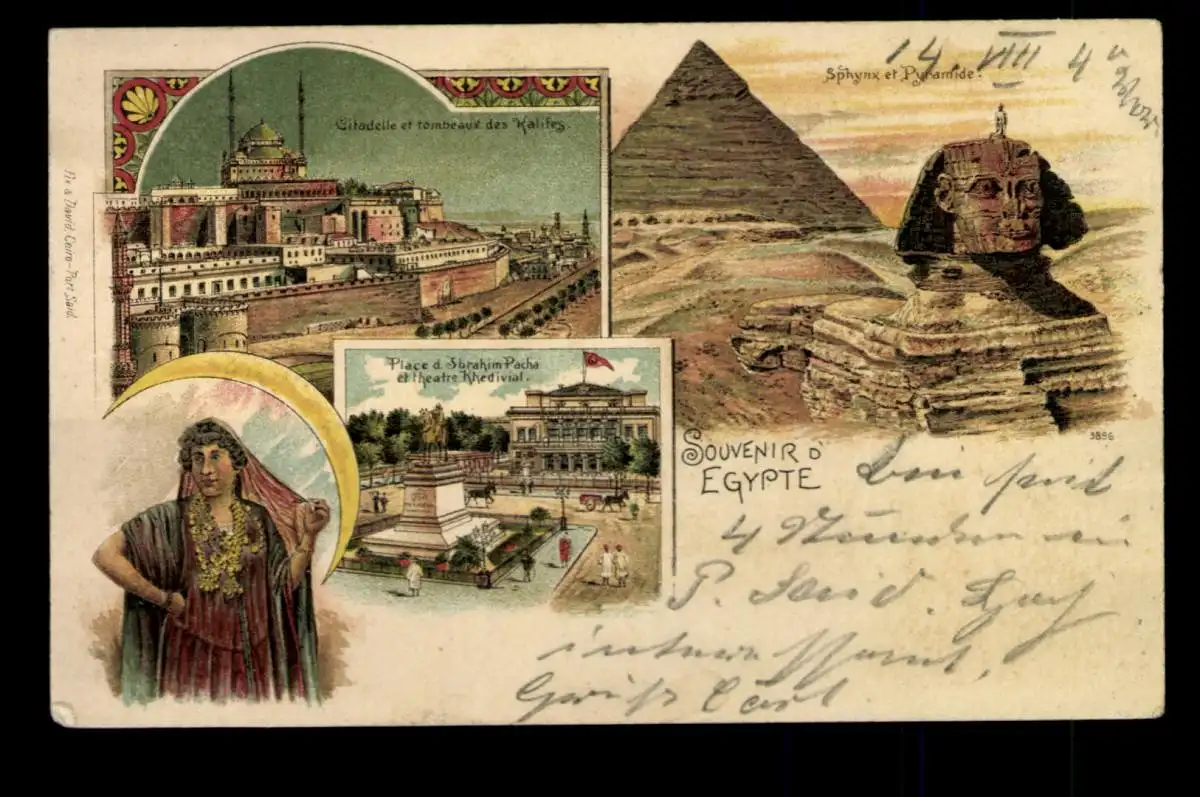 14. VIII
Sphynx et Pyramide.
Citadelle et tombeaux des Kalifes.
Fix & David. Cairo-Port Said.
Place d. Ibrahim Pacha
et theatre Khedivial.
3896
SOUVENIR D'
EGYPTE
Bin seit
4 Stunden in
P. Said.
Gruß Carl